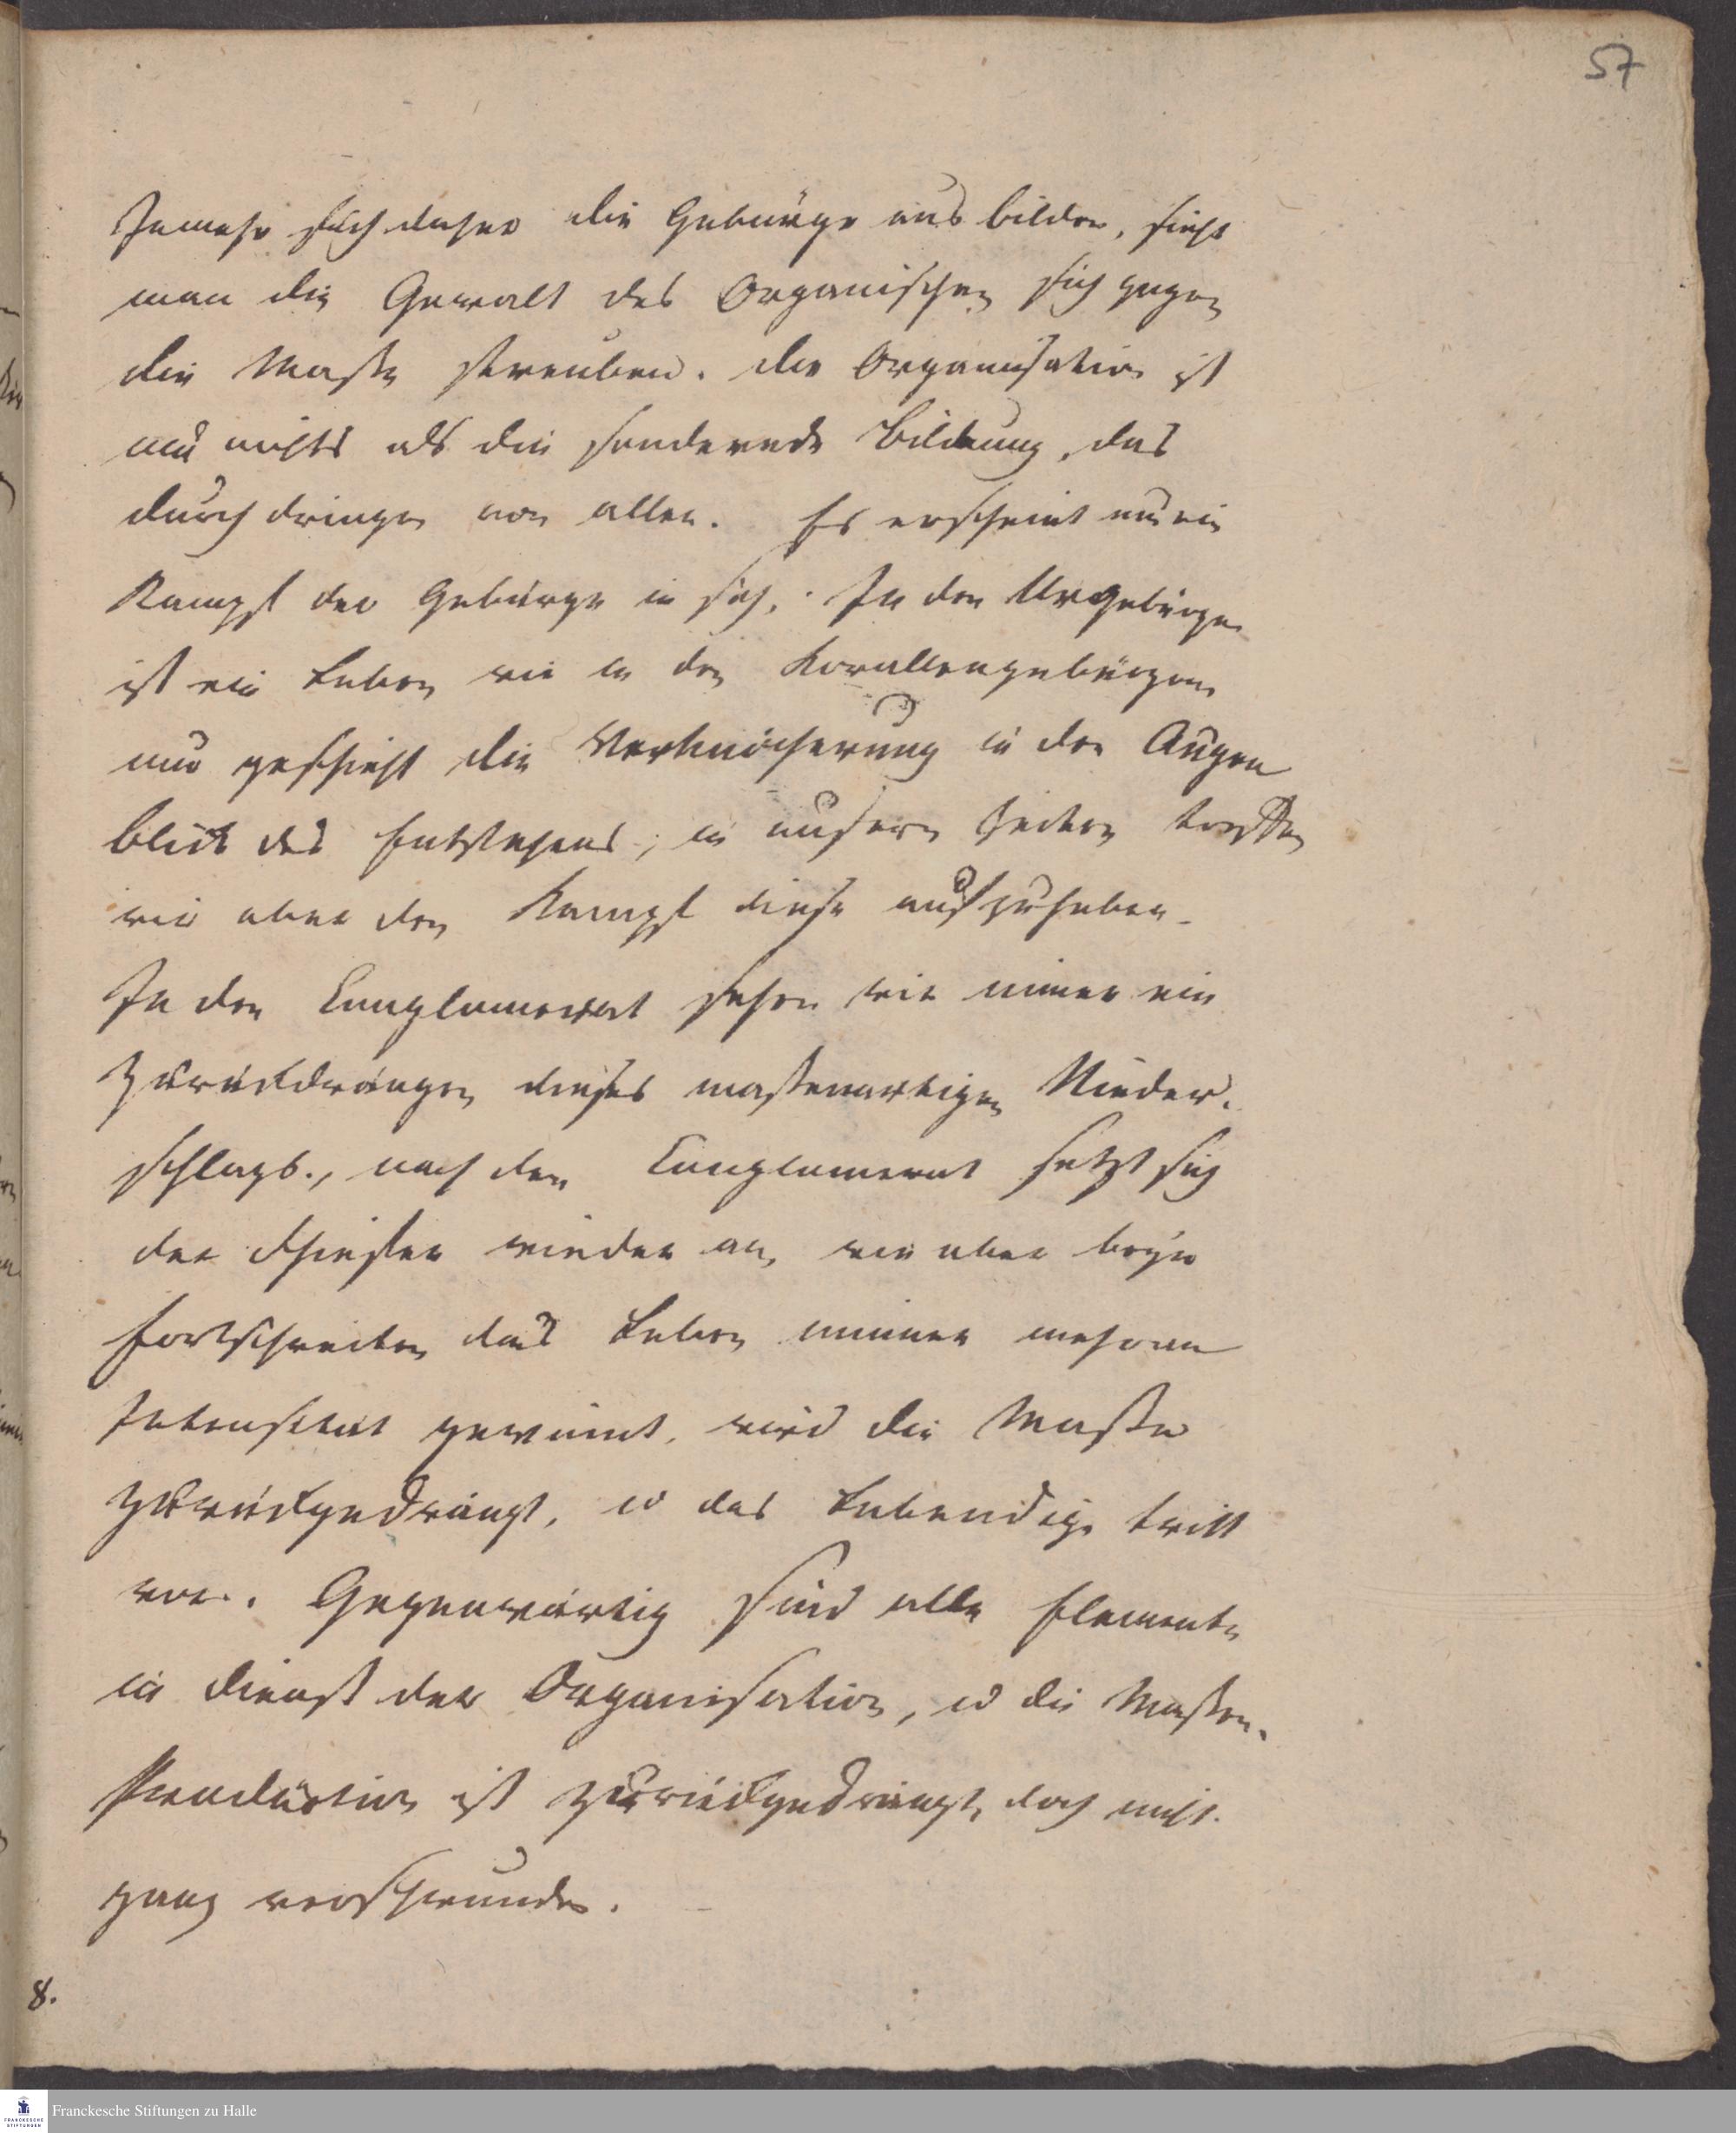 57
Jemehr sich daher die Gebürge aus bilden, sieht
man die Gewalt des Organischen sich gegen
die Maße streuben. die Organisation ist
nur nichts als die sondernde Bildung, das
durch dringen von allen. Es erscheint nur ein
Kampf der Gebürge in sich. In den Urgebürgen
ist ein Leben wie in den Korallengebürgen
nur geschieht die Verknöcherung in den Augen
blick des Entstehens; in unsern Zeiten treffen
wir aber den Kampf diese aufzuheben.
In den Conglomerat sehen wir immer ein
Zurückdrängen dieses maßenartigen Nieder-
schlags., nach den Conglomerat setzt sich
der Schiefer wieder an, wie aber beym
fortschreiten das Leben immer mehrere
Intensität gewinnt, wird die Maße
zurückgedrängt, u das Lebendige tritt
vor. Gegenwärtig sind alle Elemente
in Dienst der Organisation, u die Maßen-
Production ist zurückgedrängt, doch nicht
ganz verschwunden.
8.
Franckesche Stiftungen zu Halle